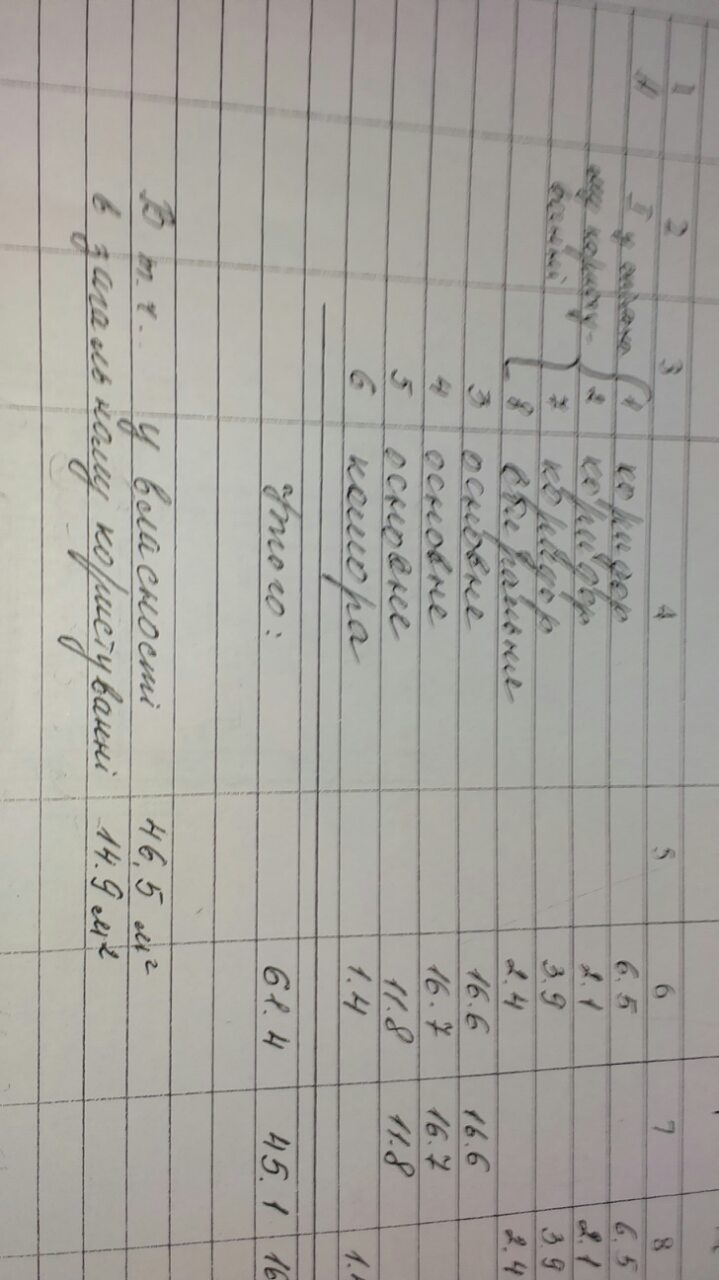 1 2 3 4 5 6 7 8
I у спільно 1 коридор 6.5 6.5
му користу- 2 коридор 2.1 2.1
ванні 7 коридор 3.9 3.9
8 вбиральня 2.4 2.4
3 основне 16.6 16.6
4 основне 16.7 16.7
5 основне 11.8 11.8
6 комора 1.4
Итого: 61.4 45.1 16
В т.ч. у власності 46,5 м²
в загальному користуванні 14.9 м²